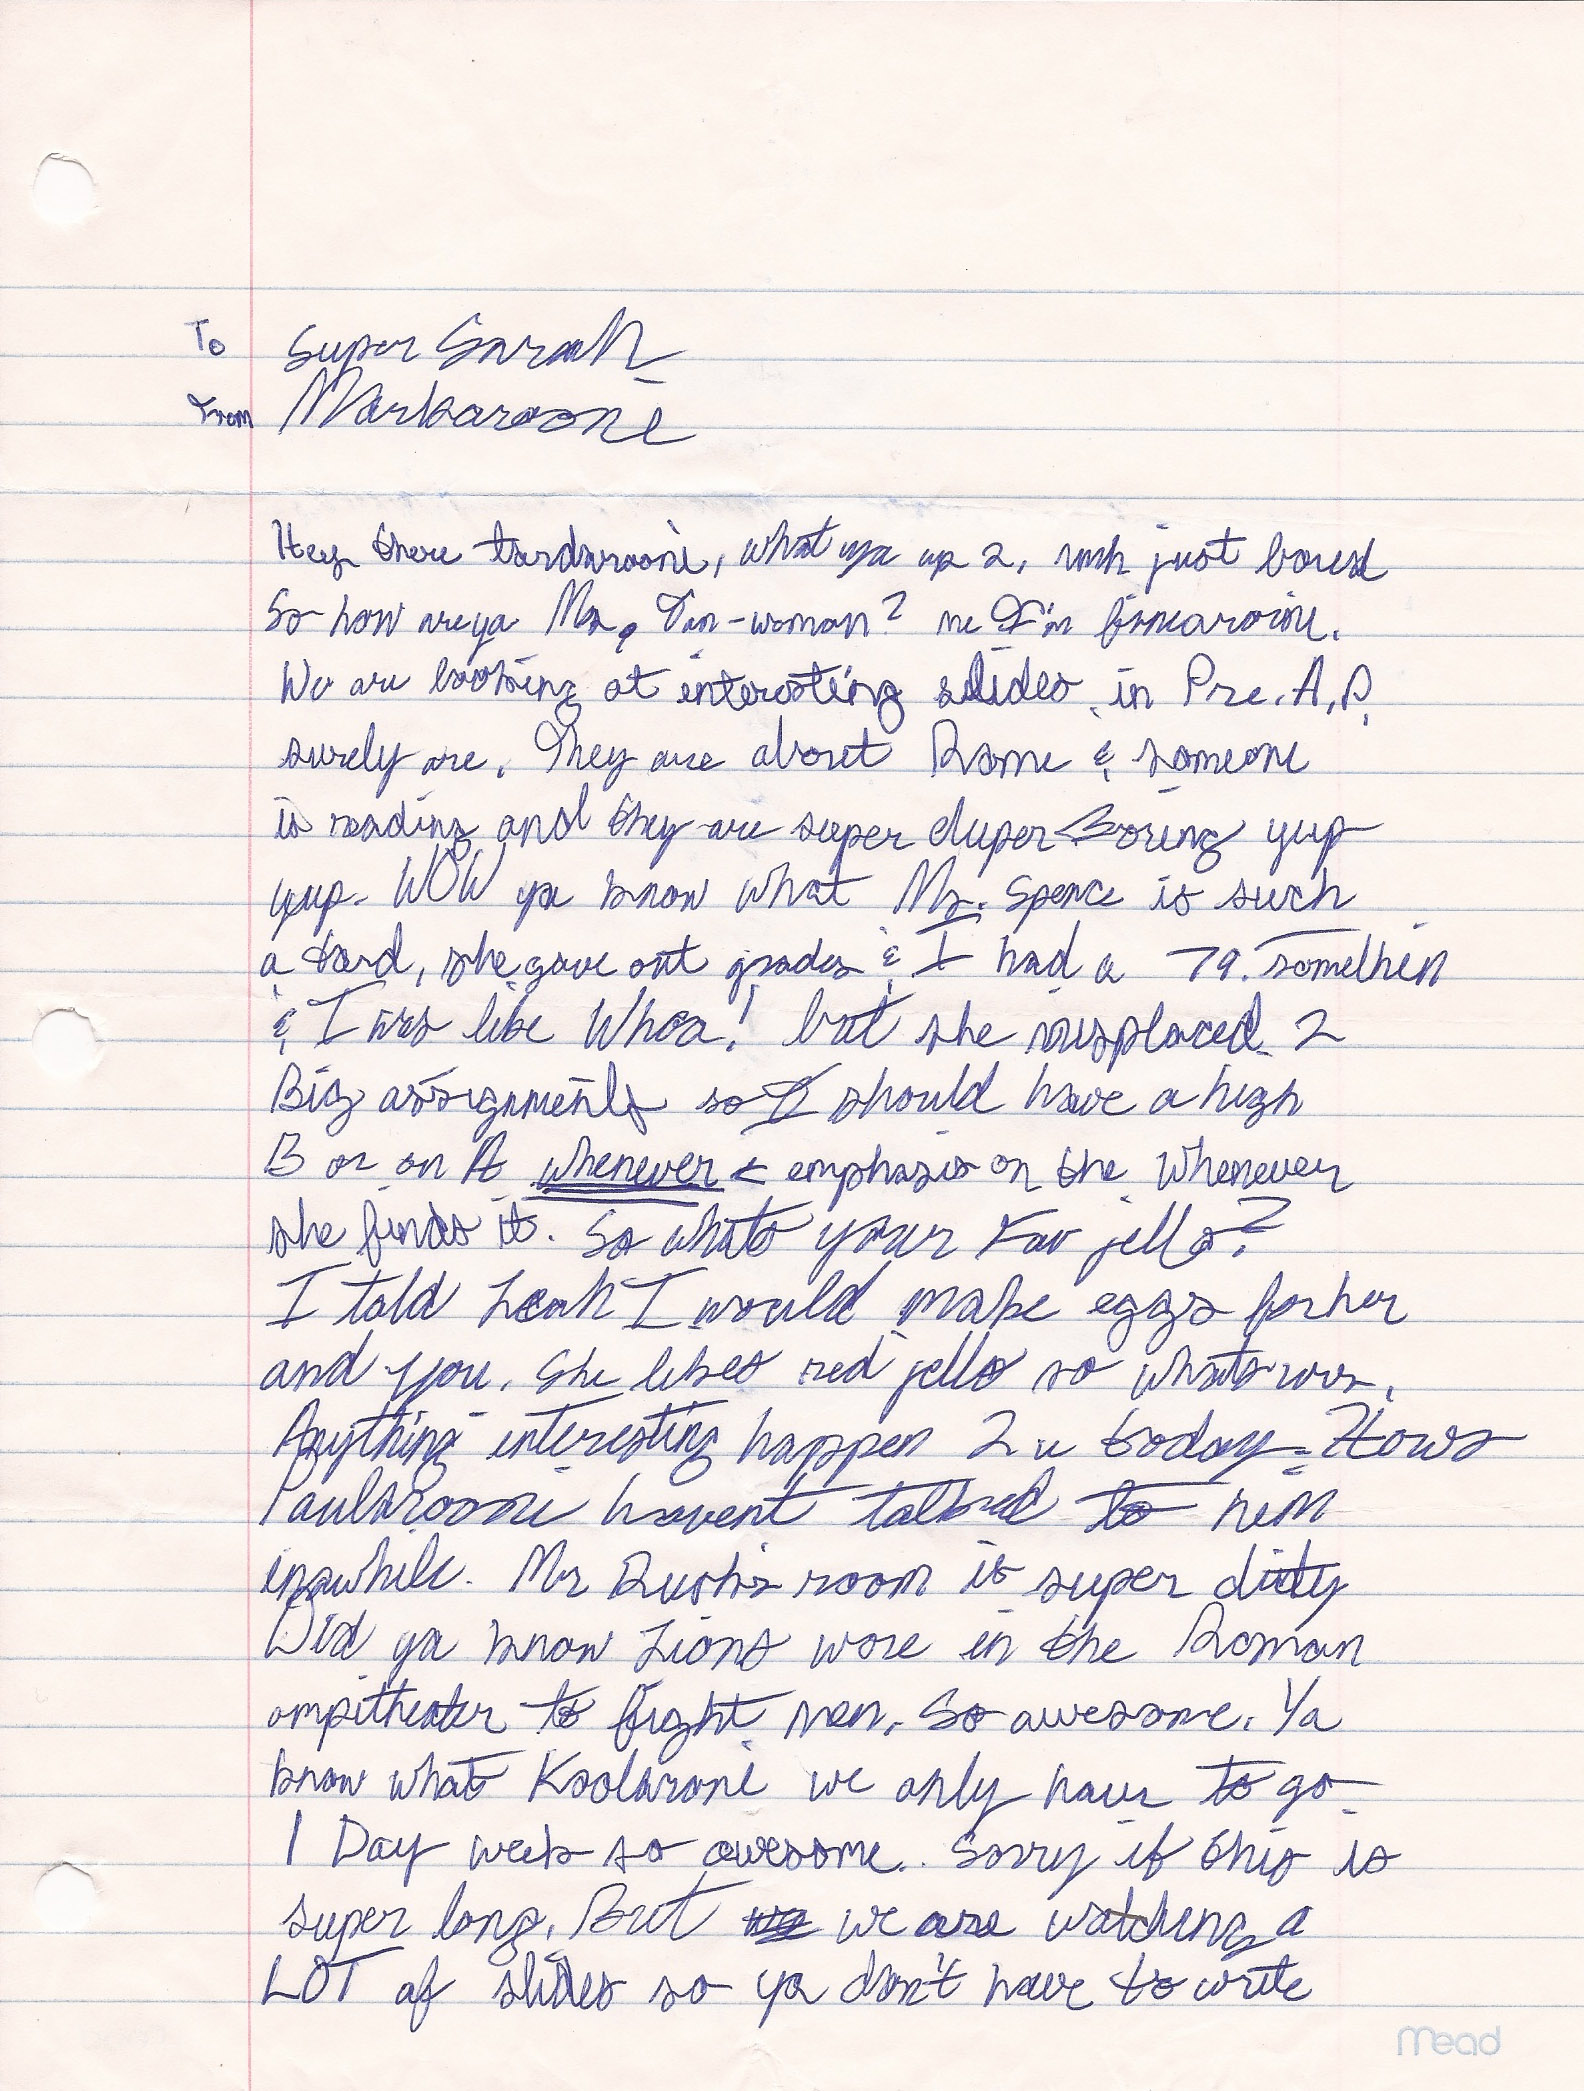 To Super Sarah
From Markaroone
Hey there tardarooni, what ya up 2, nuh just bored
So how are ya Ms. Tan-woman? me I'm finearoini.
We are looking at interesting slides in Pre. A.P.
surely are. They are about Rome & someone
is reading and they are super duper Boring yup
yup. WOW ya know what Ms. Spence is such
a tard, she gave out grades & I had a 79. somethin
& I was like Whoa! but she misplaced 2
Big assignments so I should have a high
B or an A whenever < emphasis on the whenever
she finds it. So whats your Fav jello?
I told Leah I would make eggs for her
and you. She likes red jello so whats urs.
Anything interesting happen 2 u today. Hows
Paularooni havent talked to him
inawhile. Mr Rush's room is super dirty
Did ya know Lions wore in the Roman
ampitheater to fight men. So awesome. Ya
know what Koolaroni we only have to go
1 Day week so awesome.. Sorry if this is
super long. But we are watching a
LOT of slides so ya don't have to write
Mead